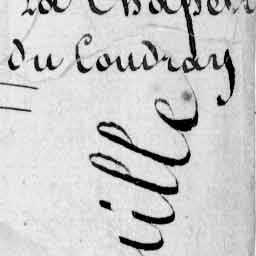 La Chapelle
du Coudray
ville